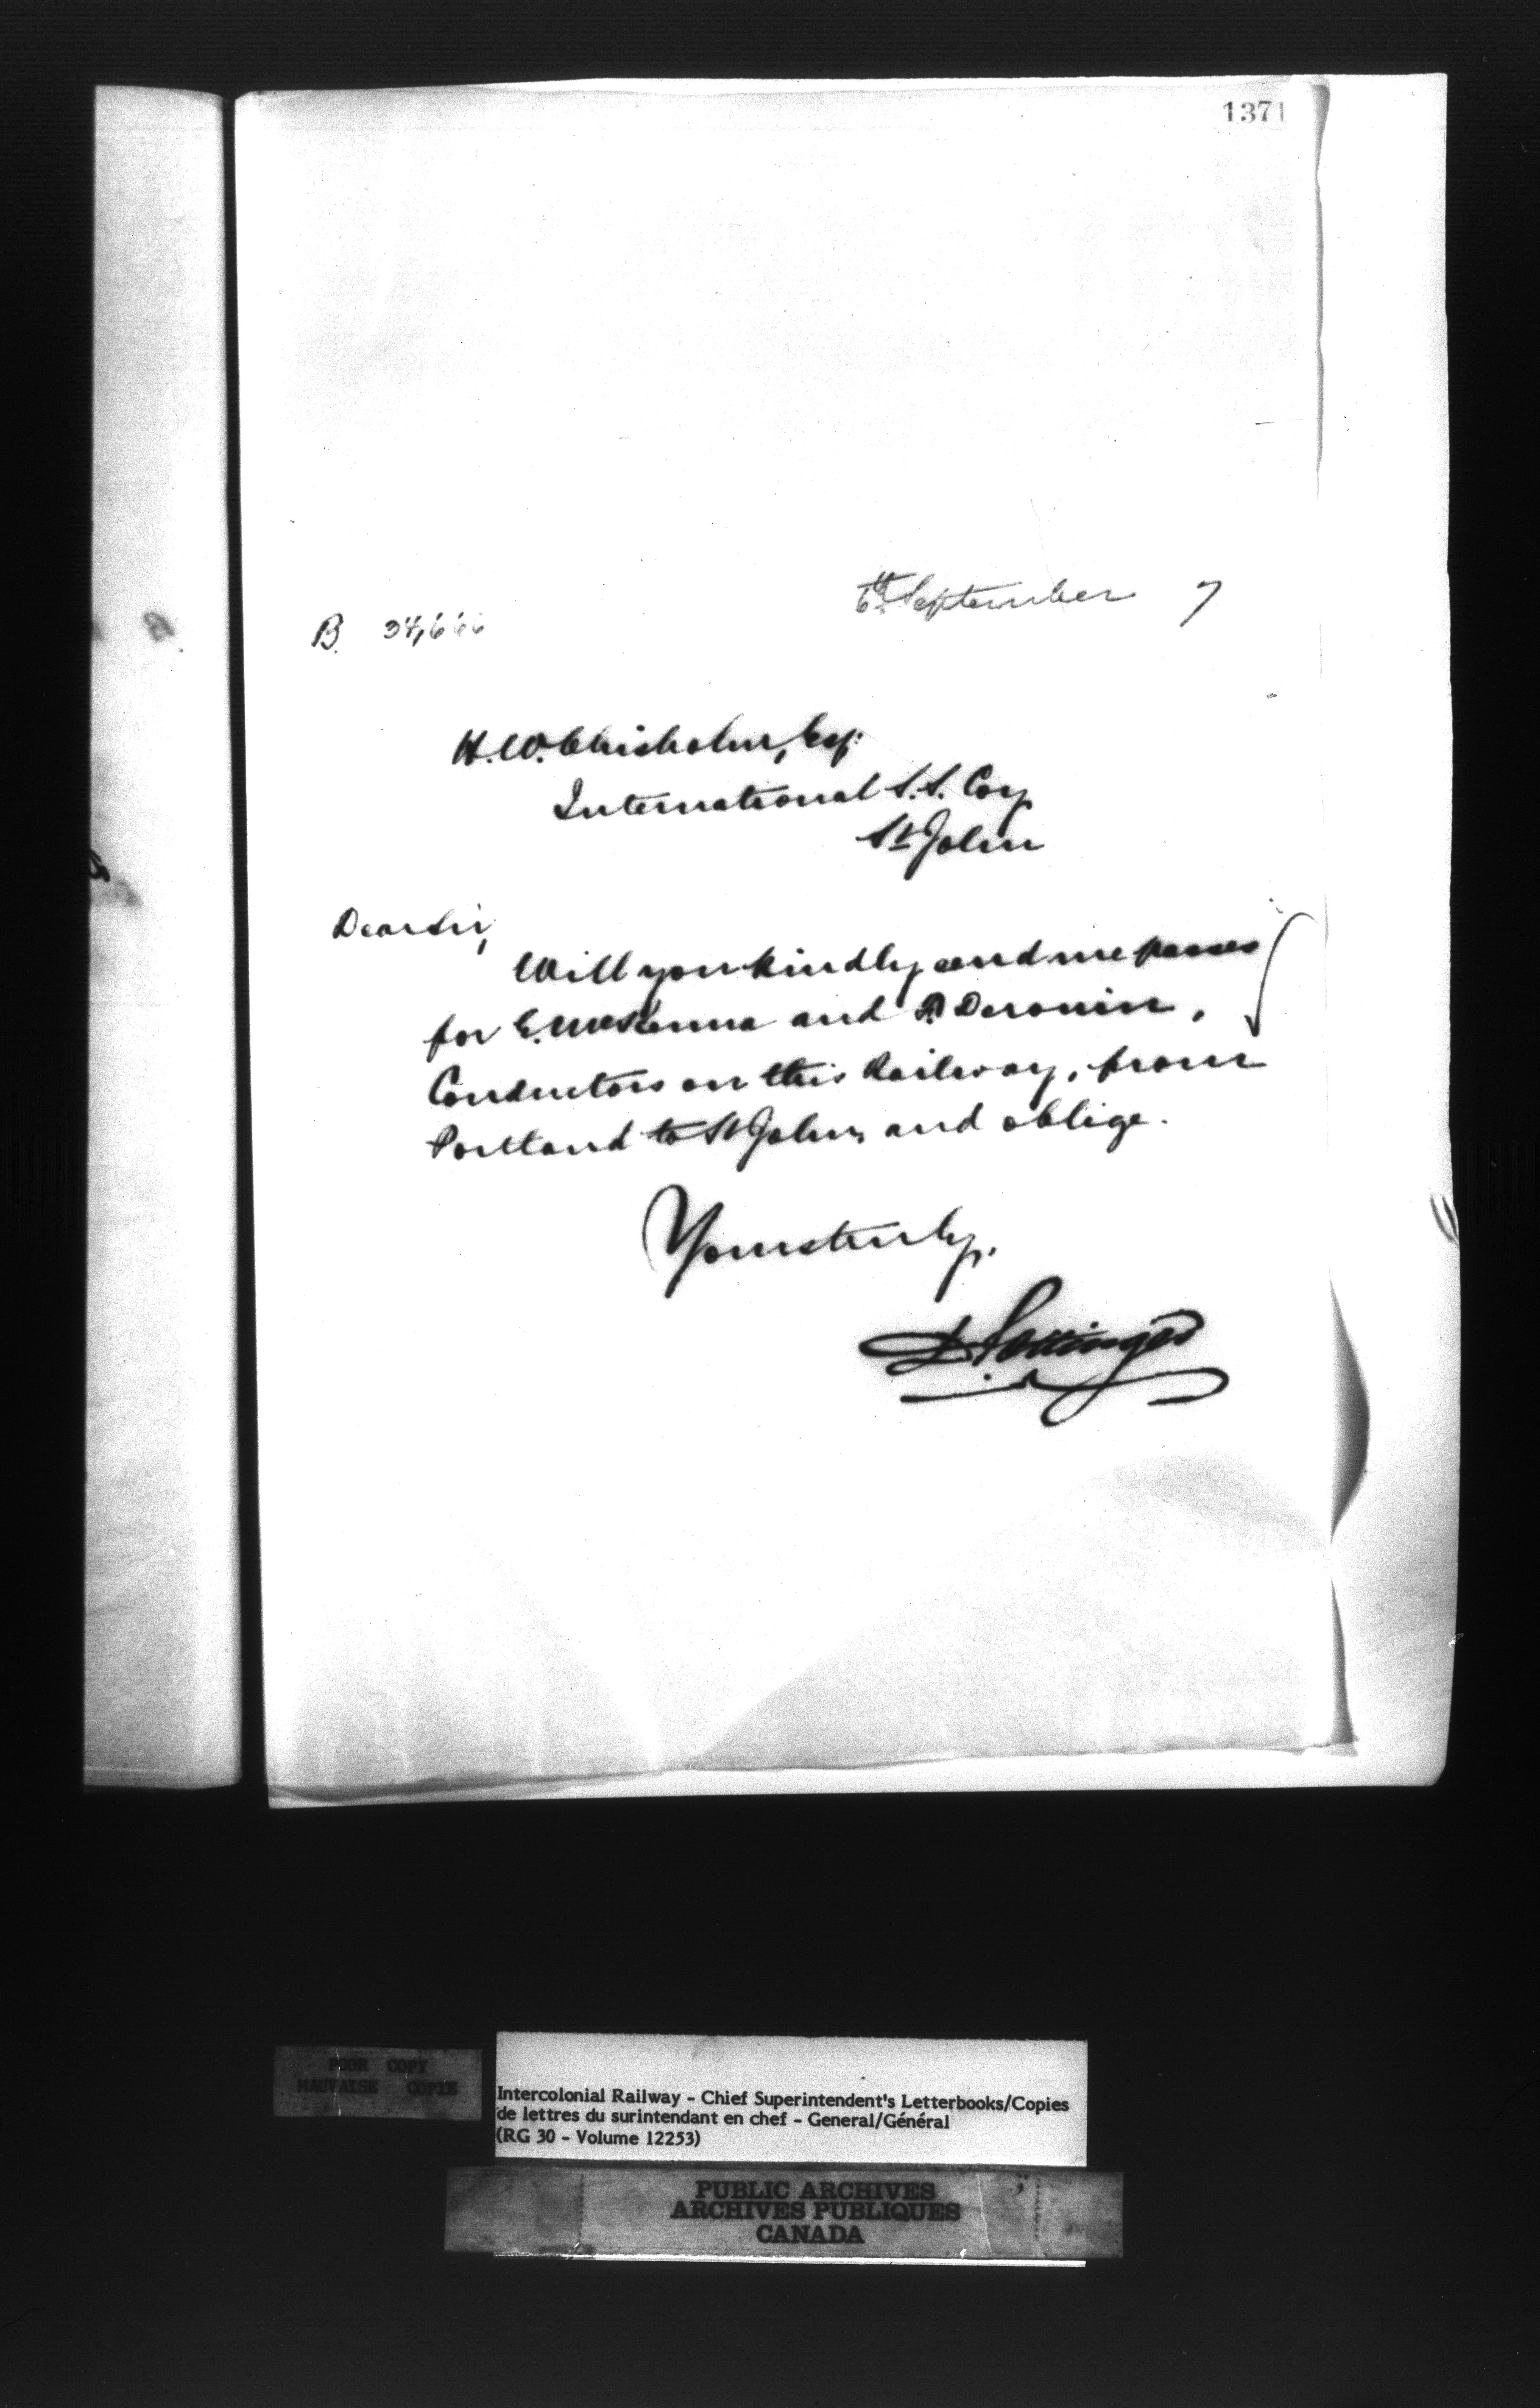 1371
6th September 7
B. 34,666
H. W. Chisholm, Esq.
International S.S. Coy
St John
Dear Sir,
Will you kindly send me passes
for E. McKenna and A. Deronin,
Conductors on this Railway, from
Portland to St John, and oblige.
Yours truly,
D. Pottinger
POOR COPY
MAUVAISE COPIE
Intercolonial Railway - Chief Superintendent's Letterbooks/Copies
de lettres du surintendant en chef - General/Général
(RG 30 - Volume 12253)
PUBLIC ARCHIVES
ARCHIVES PUBLIQUES
CANADA